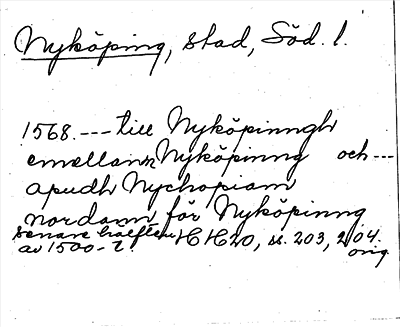 Nyköping, stad, Söd. l.
1568. --- till Nyköpinngh
emellann Nyköpinng och ---
apudh Nychopiam
nordann för Nyköpinng
senare hälften HH20, s. 203, 204.
av 1500-t. orig